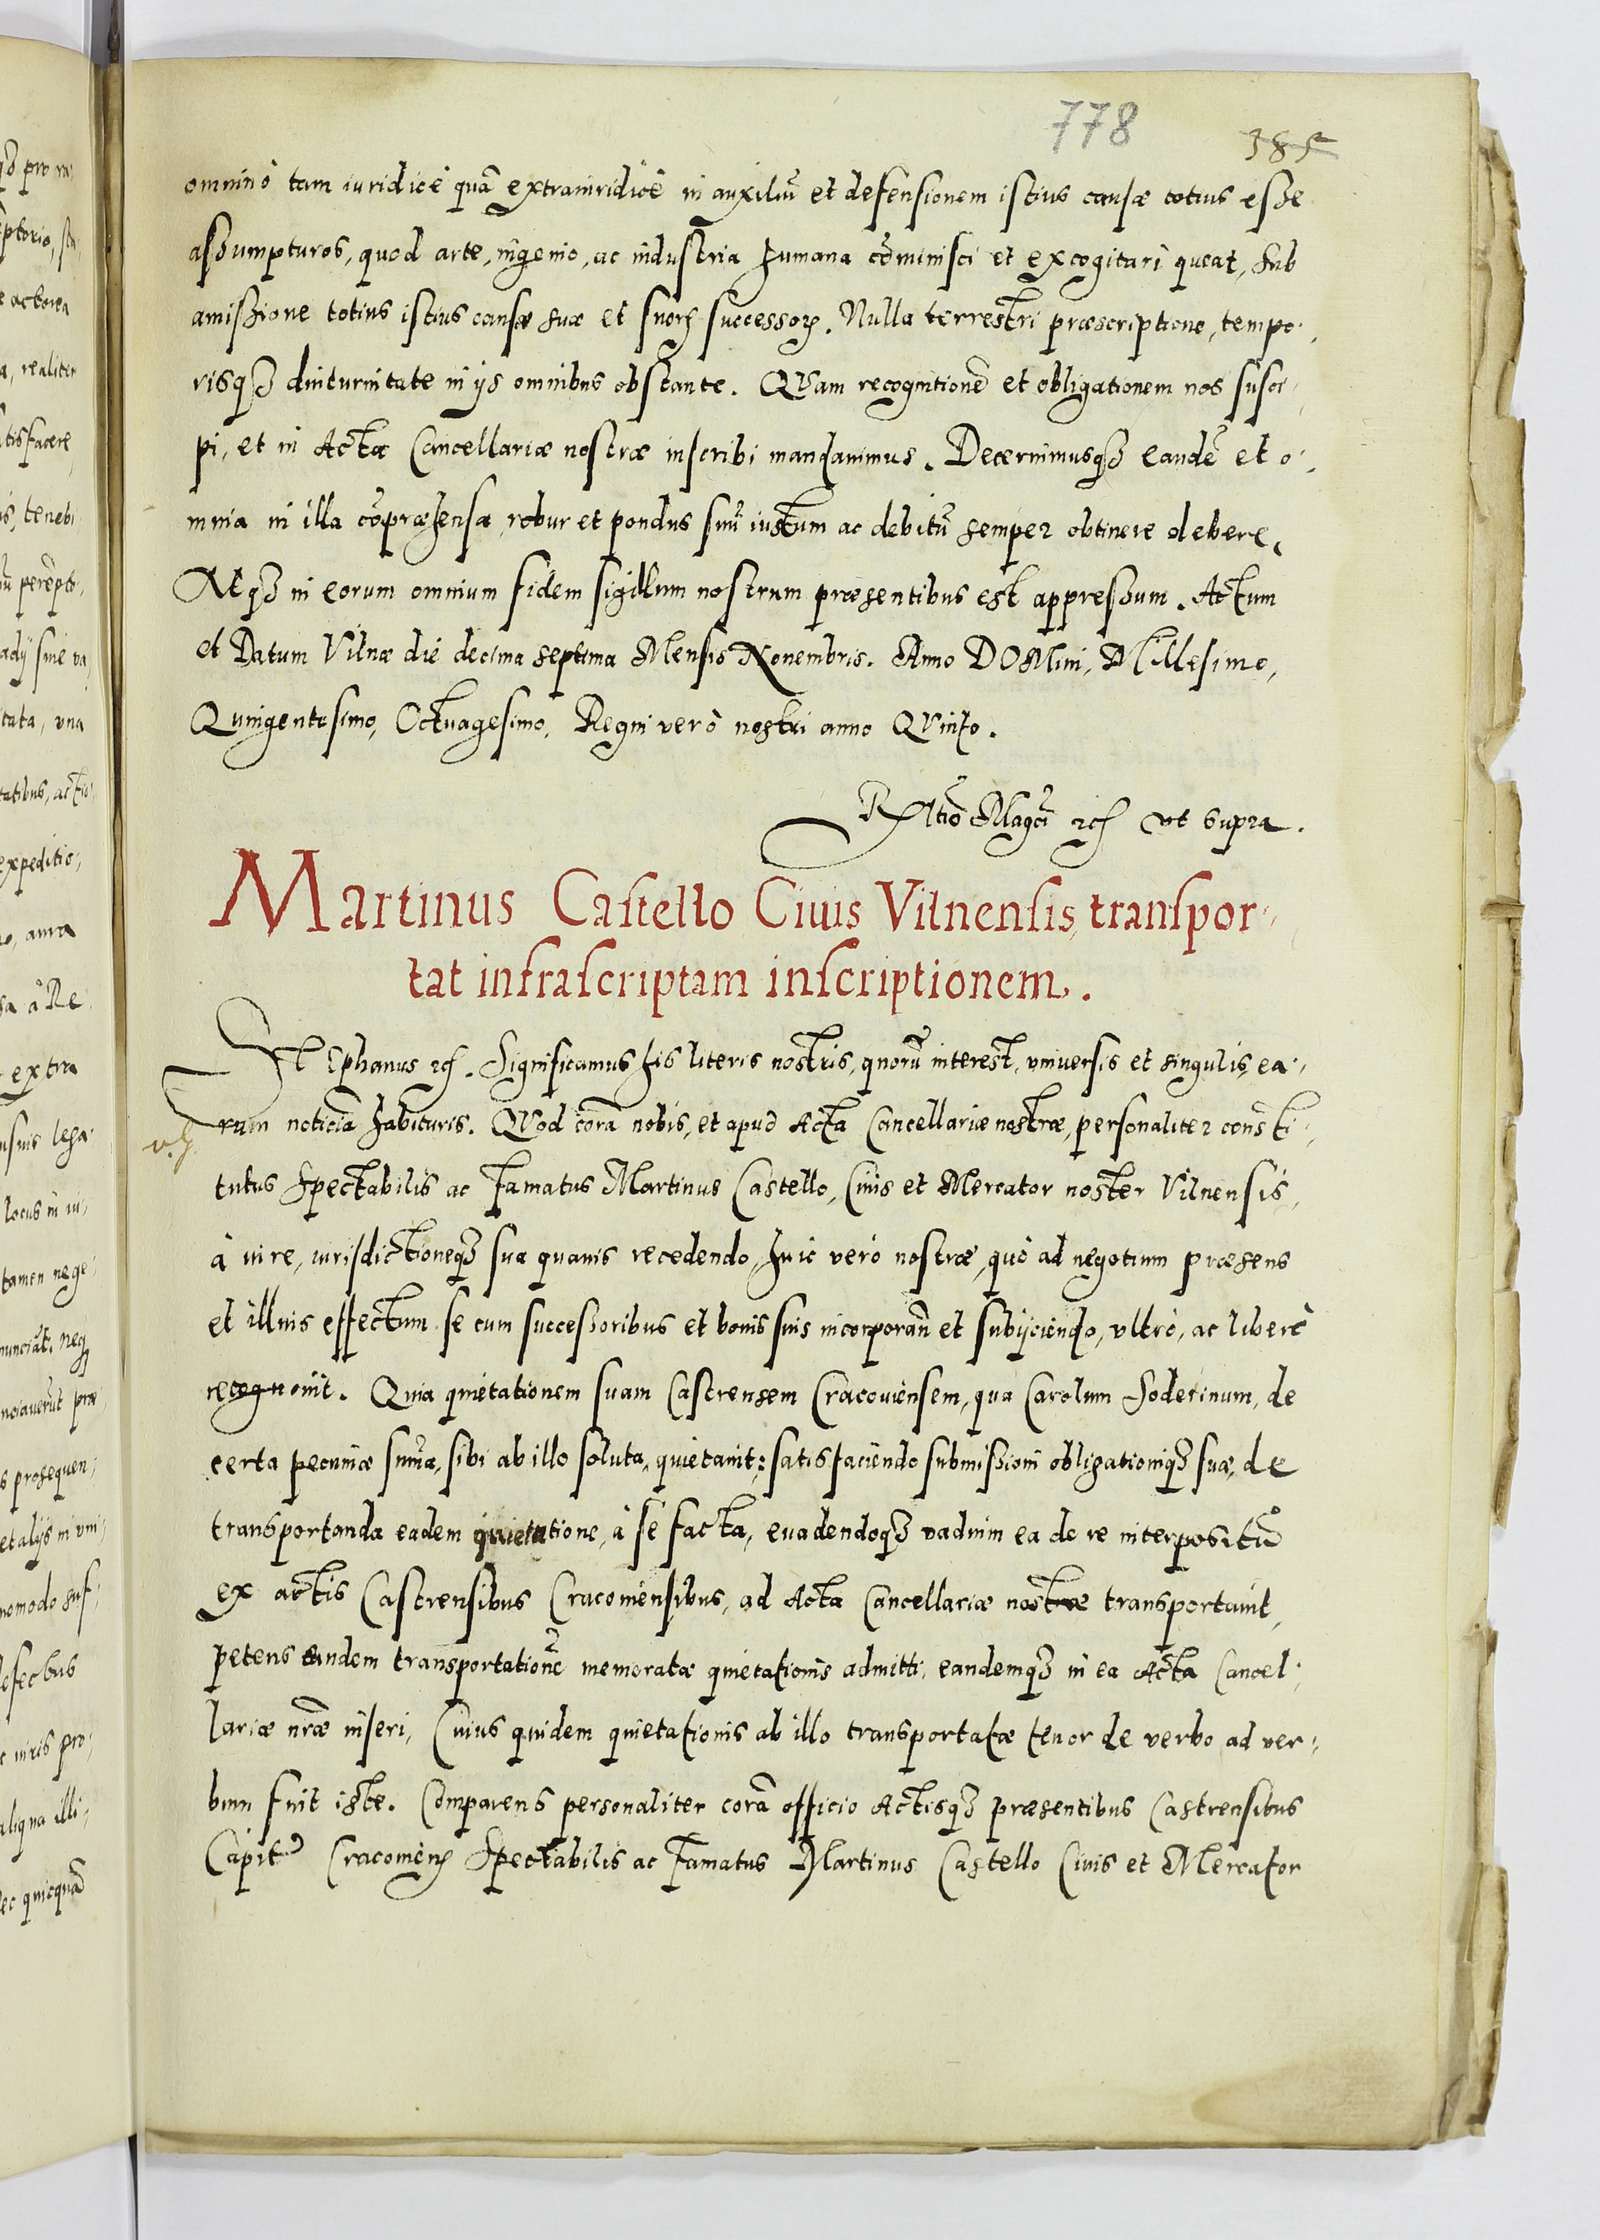 778
385
omninò tam iuridicè quā extraiuridicè in auxiliū et defensionem istius causæ totius esse
assumpturos, quod arte, ingenio, ac industria humana cōminisci et excogitari queat, sub
amissione totius istius causæ suæ et suoꝝ successoꝝ. Nulla terrestri præscriptione, tempo
risqꝫ diuturnitate in ijs omnibus obstante. QVam recognitionē et obligationem nos susci
pi, et in Acta Cancellariæ nostræ inscribi mandauimus. Decernimusqꝫ eandē et o
mnia in illa cōpræhensa robur et pondus suū iustum ac debitū semper obtinere debere.
Atqꝫ in eorum omnium fidem sigillum nostrum præsentibus est appressum. Actum
et Datum Vilnæ die decima septima Mensis Nouembris. Anno DOMini, Millesimo,
Quingentesimo, Octuagesimo, Regni verò nostri anno QVinto.
Rltio Magci ꝛc ut supra.
Martinus Castello Ciuis Vilnensis, transpor
tat infrascriptam inscriptionem.
STephanus ꝛc. Significamus his literis nostris, quorū interest, vniuersis et singulis, ea
rum noticiā habituris. QVod corā nobis, et apud Acta Cancellariæ nostræ, personaliter consti
tutus Spectabilis ac Famatus Martinus Castello, Ciuis et Mercator noster Vilnensis,
à iure, iurisdictioneqꝫ sua quauis recedendo, huic verò nostræ, quò ad negotium præsens
et illius effectum se cum successoribus et bonis suis incorporan et subijciendo, vltrò, ac liberè
recognouit. Quia quietationem suam Castrensem Cracouiensem, qua Carolum Soderinum, de
certa pecuniæ sumā, sibi ab illo soluta, quietauit: satisfaciendo submissioni obligationiqꝫ suæ, de
transportanda eadem quietatione, à se facta, euadendoqꝫ vadium ea de re interpositū
ex actis Castrensibus Cracouiensibus, ad Acta Cancellariæ nostræ transportauit,
petens eandem transportationē memoratæ quietationis admitti, eandemqꝫ in ea Acta Cancel
lariæ nrāe inseri, Cuius quidem quietationis ab illo transportatæ tenor de verbo ad ver
bum fuit iste. Comparens personaliter corā officio Actisqꝫ præsentibus Castrensibus
Capit Cracouieñ Spectabilis ac Famatus Martinus Castello Ciuis et Mercator